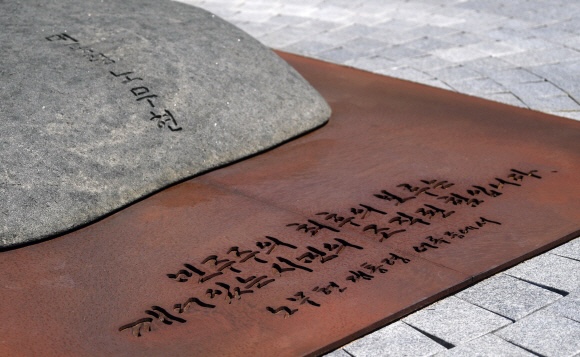 대통령 노무현
민주주의 최후의 보루는
깨어있는 시민의 조직된 힘입니다.
노무현 대통령 어록중에서